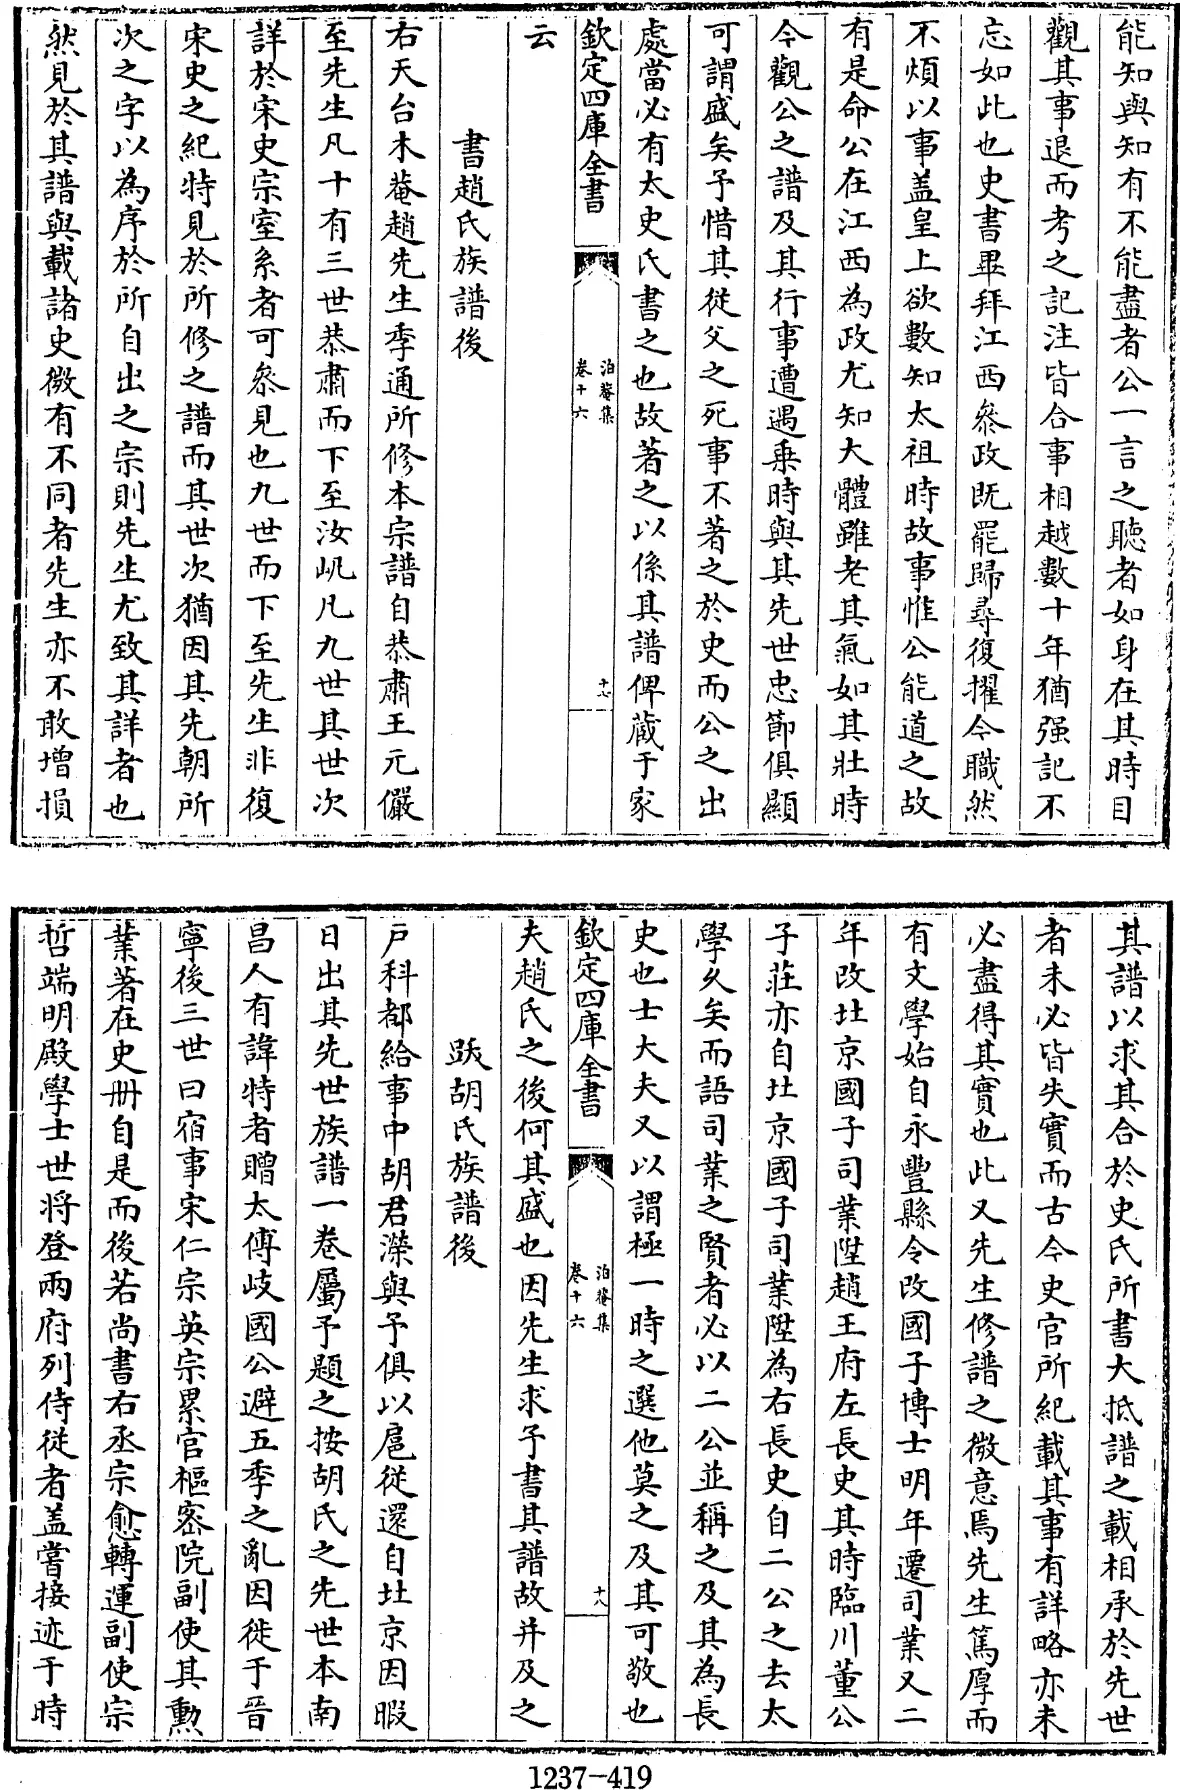 能知與知有不能盡者公一言之聽者如身在其時目
觀其事退而考之記注皆合事相越數十年猶强記不
忘如此也史書畢拜江西叅政既罷歸尋復擢今職然
不煩以事盖皇上欲數知太祖時故事惟公能道之故
有是命公在江西為政尤知大體雖老其氣如其壯時
今觀公之譜及其行事遭遇乗時與其先世忠節俱顯
可謂盛矣予惜其從父之死事不著之於史而公之出
處當必有太史氏書之也故著之以係其譜俾藏于家
欽定四庫全書
泊菴集
卷十六
十七
云
書趙氏族譜後
右天台木菴趙先生季通所修本宗譜自恭肅王元儼
至先生凡十有三世恭肅而下至汝㠶凡九世其世次
詳於宋史宗室系者可叅見也九世而下至先生非復
宋史之紀特見於所修之譜而其世次猶因其先朝所
次之字以為序於所自出之宗則先生尤致其詳者也
然見於其譜與載諸史微有不同者先生亦不敢增損
其譜以求其合於史氏所書大抵譜之載相承於先世
者未必皆失實而古今史官所紀載其事有詳略亦未
必盡得其實也此又先生修譜之微意焉先生篤厚而
有文學始自永豐縣令改國子博士明年遷司業又二
年改北京國子司業陞趙王府左長史其時臨川董公
子莊亦自北京國子司業陞為右長史自二公之去太
學久矣而語司業之賢者必以二公並稱之及其為長
史也士大夫又以謂極一時之選他莫之及其可敬也
欽定四庫全書
泊菴集
卷十六
十八
夫趙氏之後何其盛也因先生求予書其譜故并及之
跋胡氏族譜後
戸科都給事中胡君濙與予俱以扈從還自北京因暇
日出其先世族譜一卷屬予題之按胡氏之先世本南
昌人有諱特者贈太傅岐國公避五季之亂因徙于晉
寧後三世曰宿事宋仁宗英宗累官樞宻院副使其勲
業著在史冊自是而後若尚書右丞宗愈轉運副使宗
哲端明殿學士世將登兩府列侍從者盖嘗接迹于時
1237-419